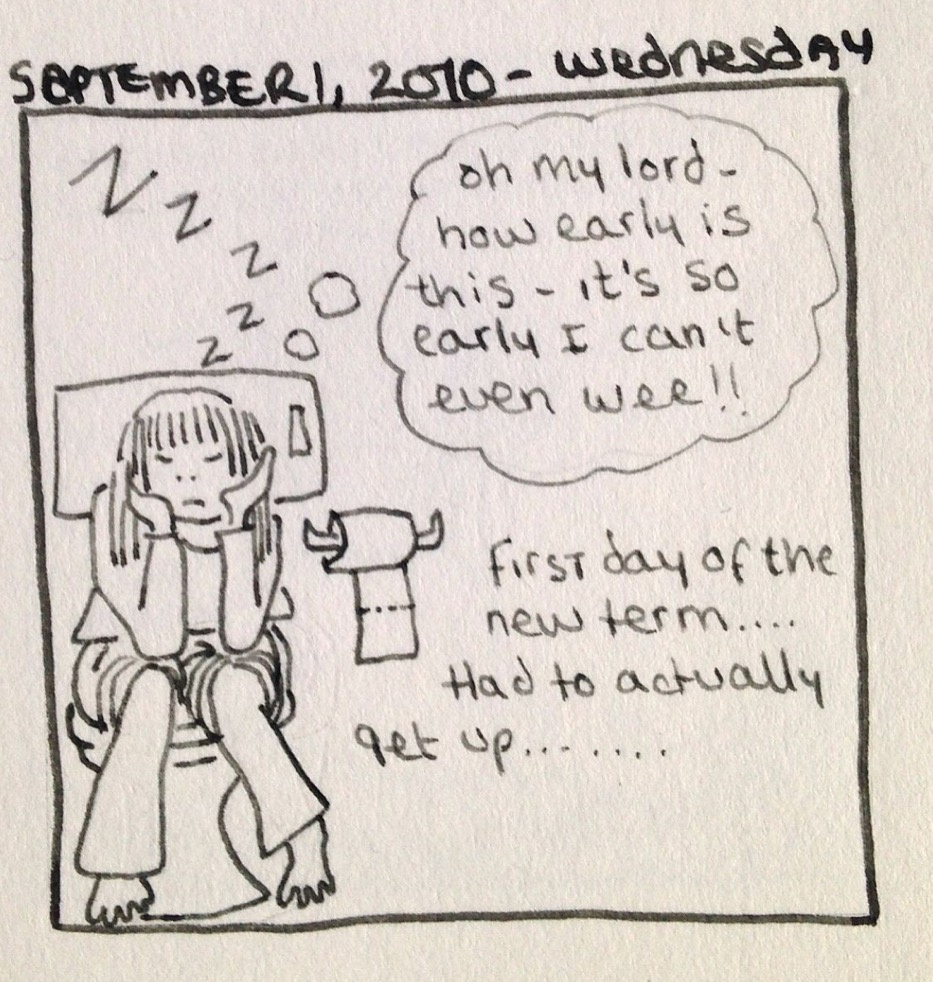 SEPTEMBER 1, 2010 - Wednesday
Z
Z
Z
Z
Z
oh my lord -
how early is
this - it's so
early I can't
even wee!!
First day of the
new term....
Had to actually
get up........